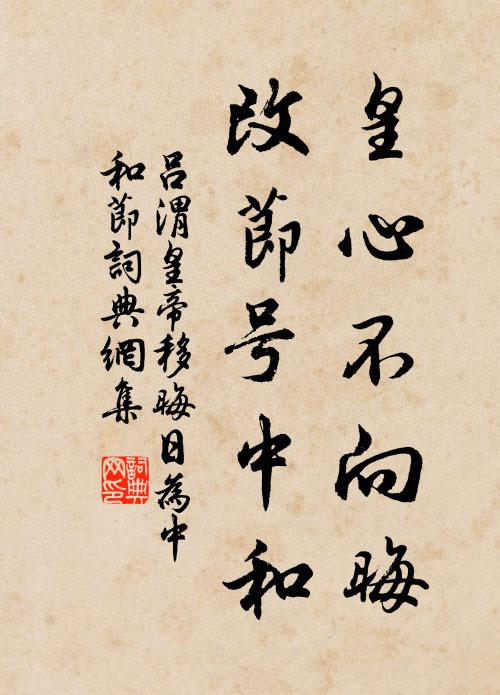 皇心不向晦
改節号中和
吕渭皇帝移晦日為中
和節詞典網集
詞典
网印